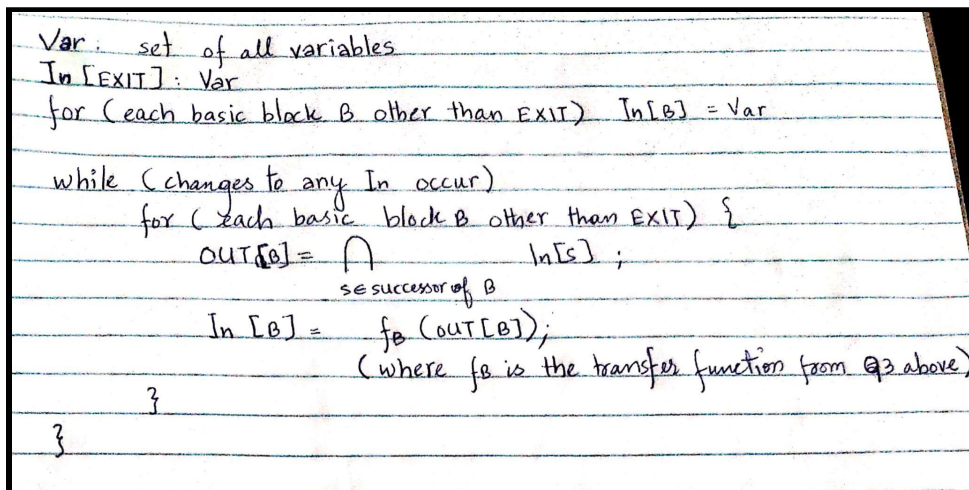 Var : set of all variables
In [EXIT] : Var
for (each basic block B other than EXIT) In[B] = Var
while (changes to any In occur)
for (each basic block B other than EXIT) {
OUT[B] = ∩ In[S] ;
S∈ successor of B
In [B] = fB (OUT[B]);
(where fB is the transfer function from Q3 above)
}
}